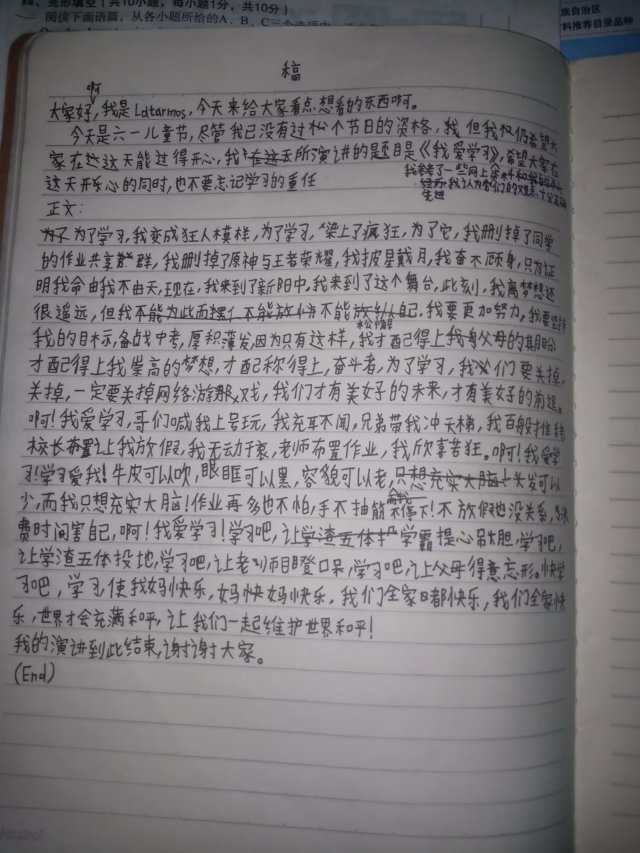 四、完形填空(共10小题,每小题1分,共10分)
阅读下面语篇,从各小题所给的A、B、C三个选项中
族自治区
料推荐目录品种
稿
啊
大家好,我是Latarmos,今天来给大家看点想看的东西啊。
今天是六一儿童节,尽管我已没有过这个节日的资格,我但我仅仍希望大
家在这天能过得开心,我在这天所演讲的题目是《我爱学习》,希望大家在
我参考了一些网上
这天开乐心的同时,也不要忘记学习的重任
我认为他们的
先过
正文:
为了学习,我变成狂人模样,为了学习,染上了疯狂,为了它,我删掉了同学
的作业共享群,我删掉了原神与王者荣耀,我披星戴月,我奋不顾身,只为证
明我命由我不由天,现在,我来到了新阳中,我来到了这个舞台,此刻,我离梦想还
很遥远,但我不能为此而摆不能放松不能放纵自己,我要更加努力,我要坚持
松懈
我的目标,备战中考,厚积薄发,因为只有这样,我才配得上我身父母的期盼,
才配得上我崇高的梦想,才配称得上,奋斗者,为了学习,我们要关掉,
关掉,一定要关掉网络游戏,我们才有美好的未来,才有美好的前途。
啊!我爱学习,哥们喊我上号玩,我充耳不闻,兄弟带我冲天梯,我百般推
校长让我放假,我无动于衷,老师布置作业,我欣喜若狂。啊!我爱学
习!学习爱我!牛皮可以吹,眼眶可以黑,容貌可以老,只想充实大脑!头发可以
少,而我只想充实大脑!作业再多也不怕,手不抽筋不停下!不放假也没关系,
费时间害自己,啊!我爱学习!学习吧,让学渣五体投学霸提心吊胆,学习吧,
让学渣五体投地,学习吧,让老师目瞪口呆,学习吧,让父母得意忘形。快学
习吧,学习使我妈快乐,妈快妈快乐,我们全家都快乐,我们全家快
乐,世界才会充满和平,让我们一起维护世界和平!
我的演讲到此结束,谢谢大家。
(End)